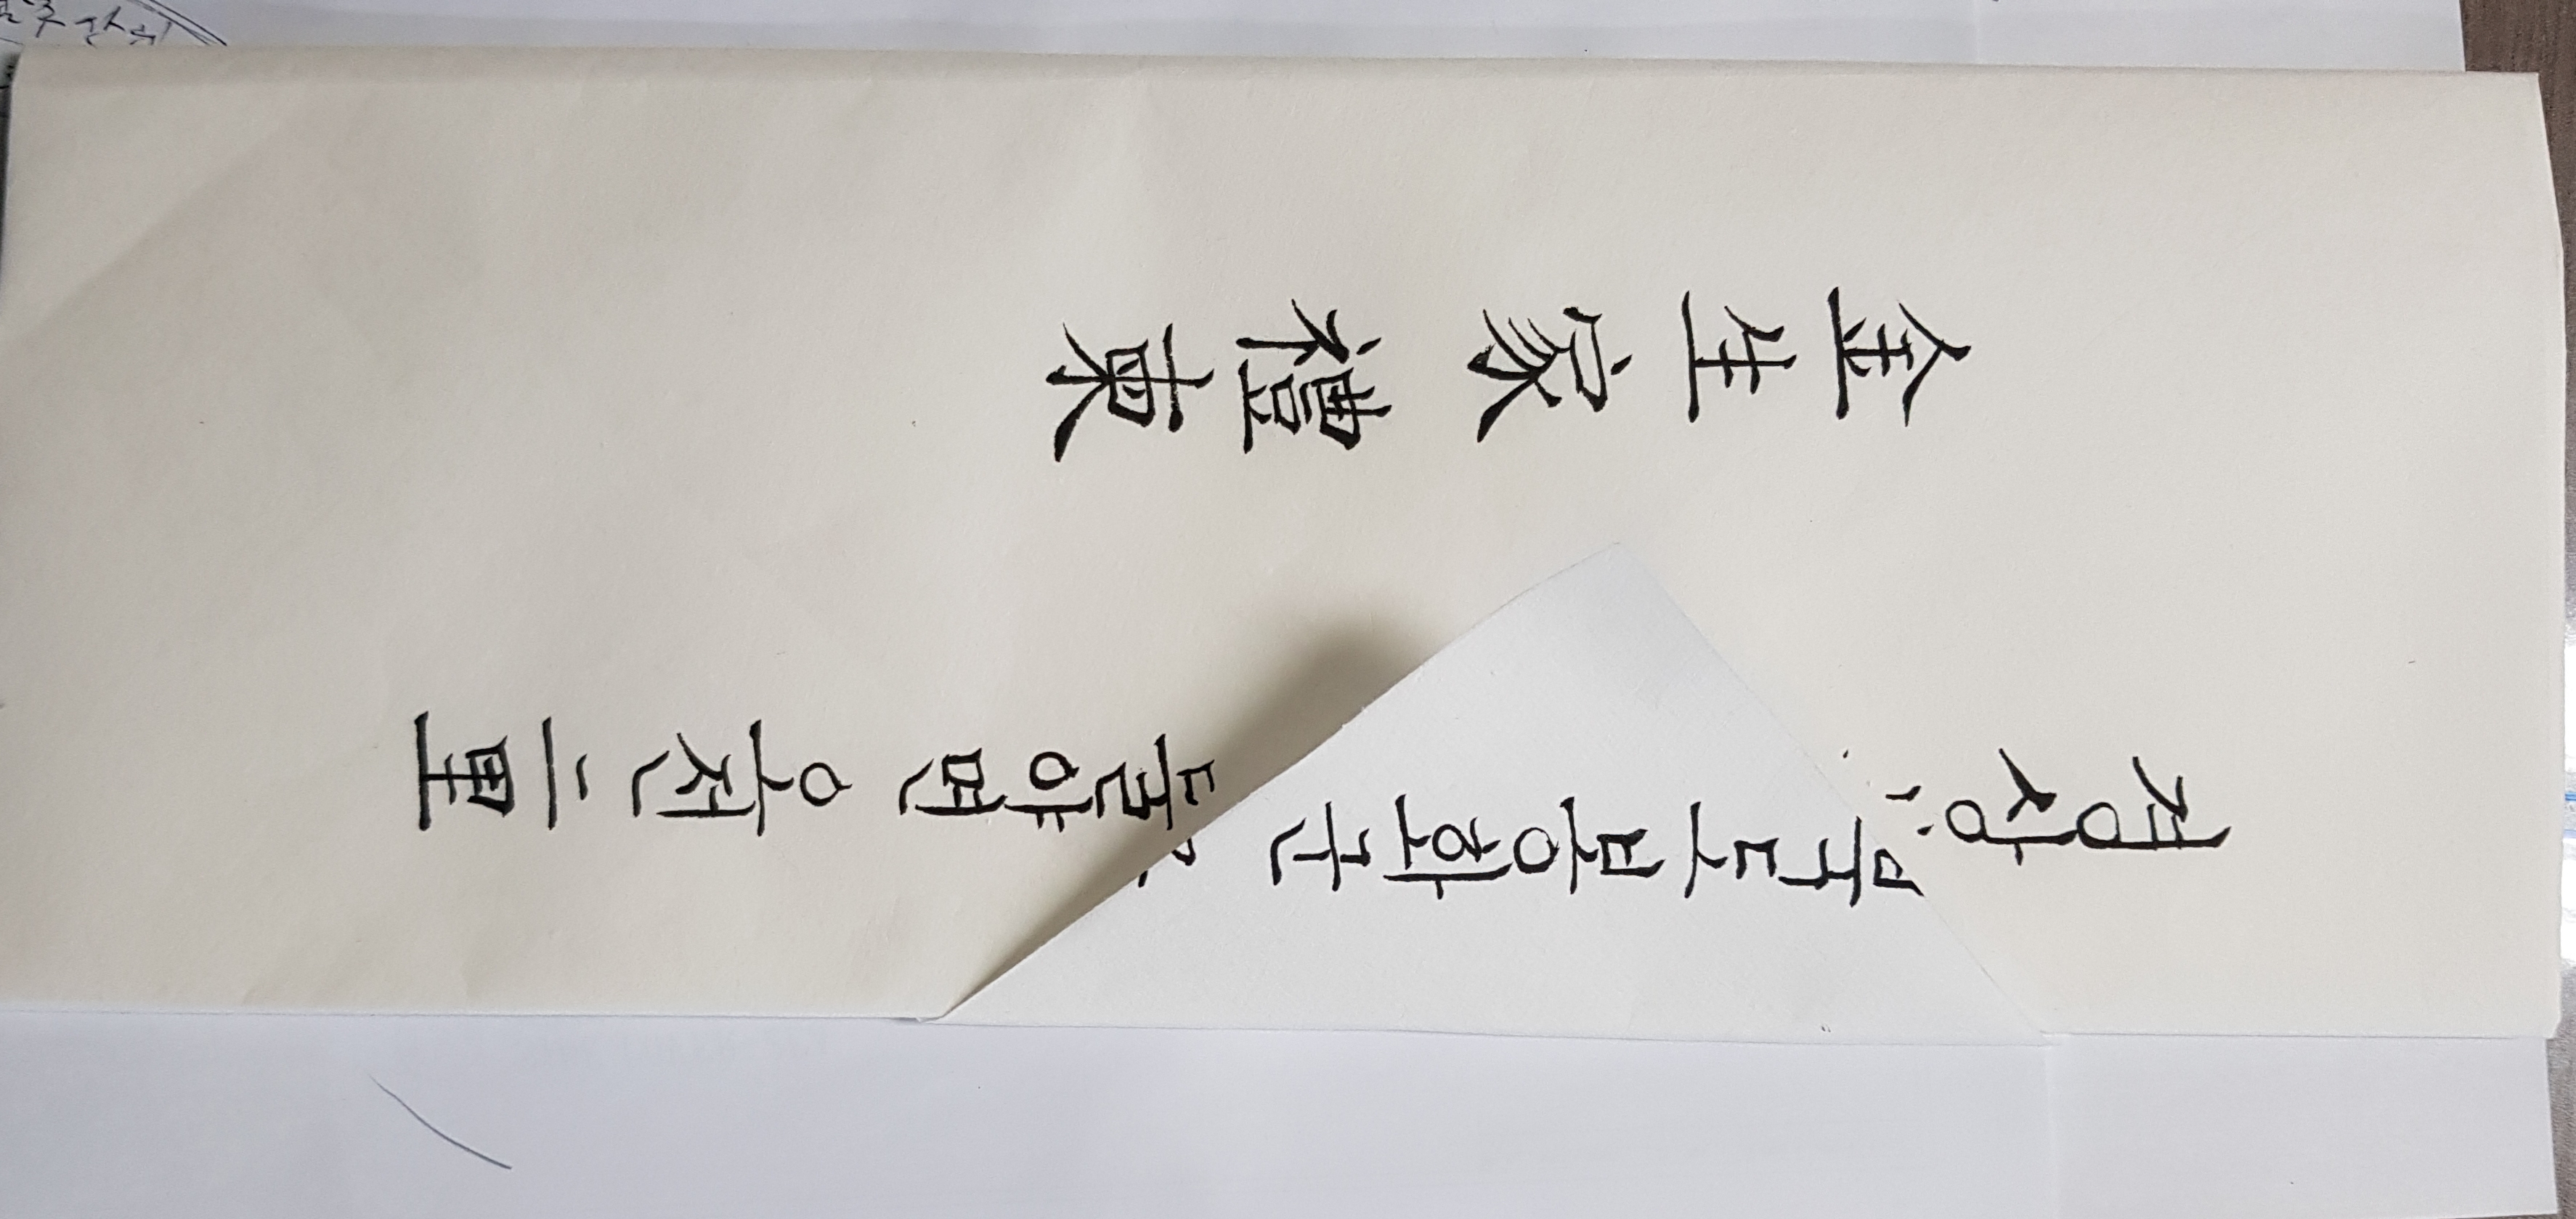 경상북도 봉화군 물야면 오전 二里
金生家禮東